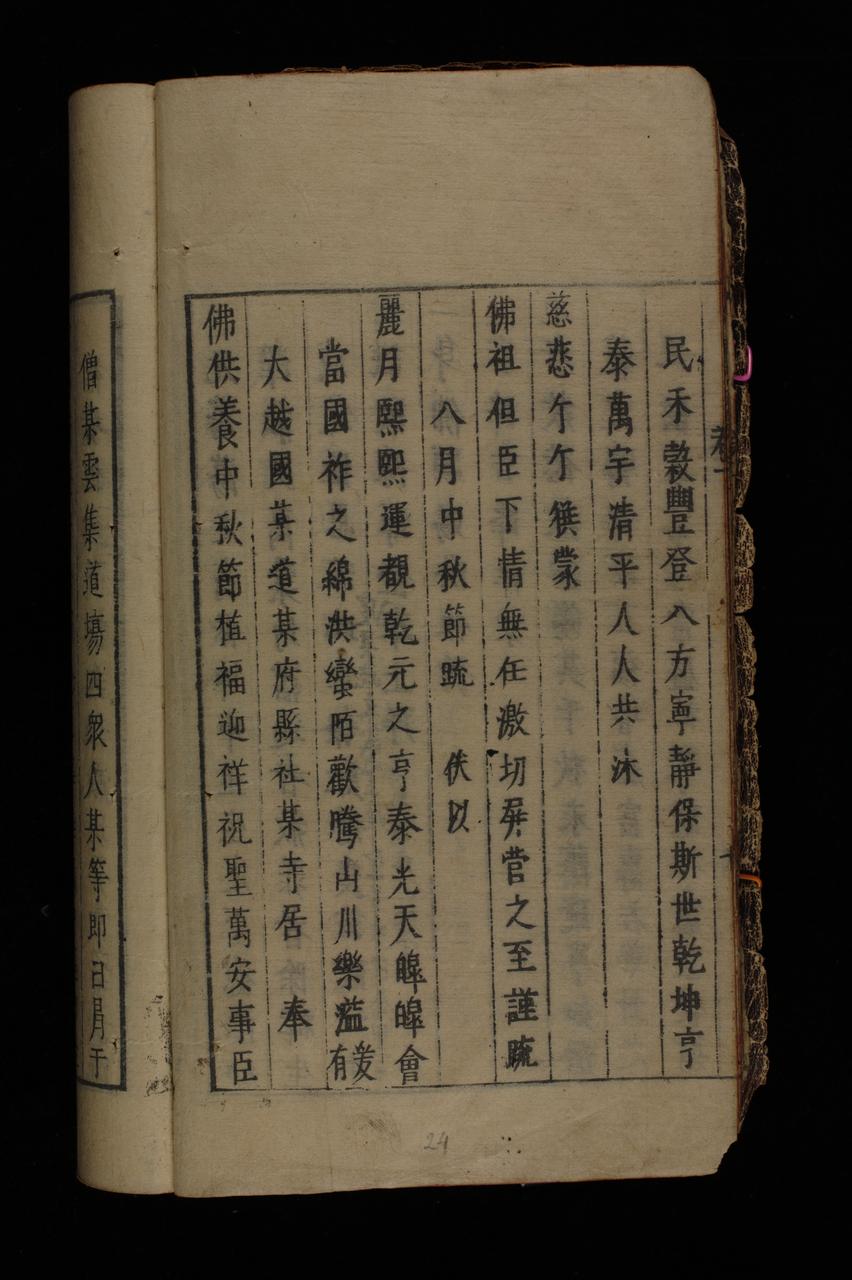 民禾穀豐登八方寧靜保斯世乾坤亨
泰萬宇清平人人共沐
慈悲个个俟蒙
佛祖但臣下情無任激切屏营之至謹疏
八月中秋節疏 伏以
麗月熙熙運覩乾元之亨泰光天皥皥會
當國祚之綿洪蠻陌歡騰山川樂溢爰有
大越國某道某府縣社某寺居奉
佛供養中秋節植福迎祥祝聖萬安事臣
僧某雲集道場四衆人某等即日月于
24